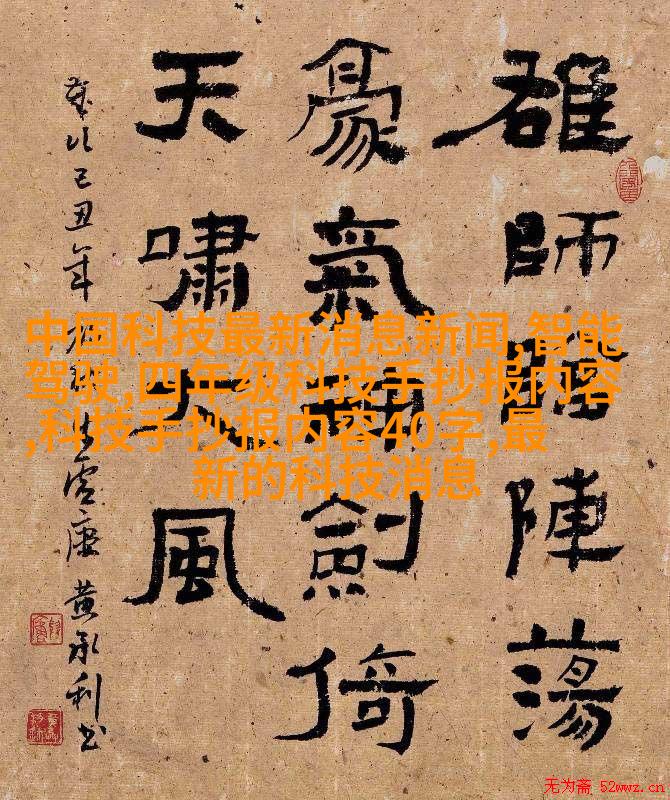 雄師陣蕩
豪氣劍倚
天嘯大風
己丑年
黄承利书
中国科技最新消息新闻,智能
驾驶,四年级科技手抄报内容
,科技手抄报内容40字,最
新的科技消息
无为斋 52wwz.cn